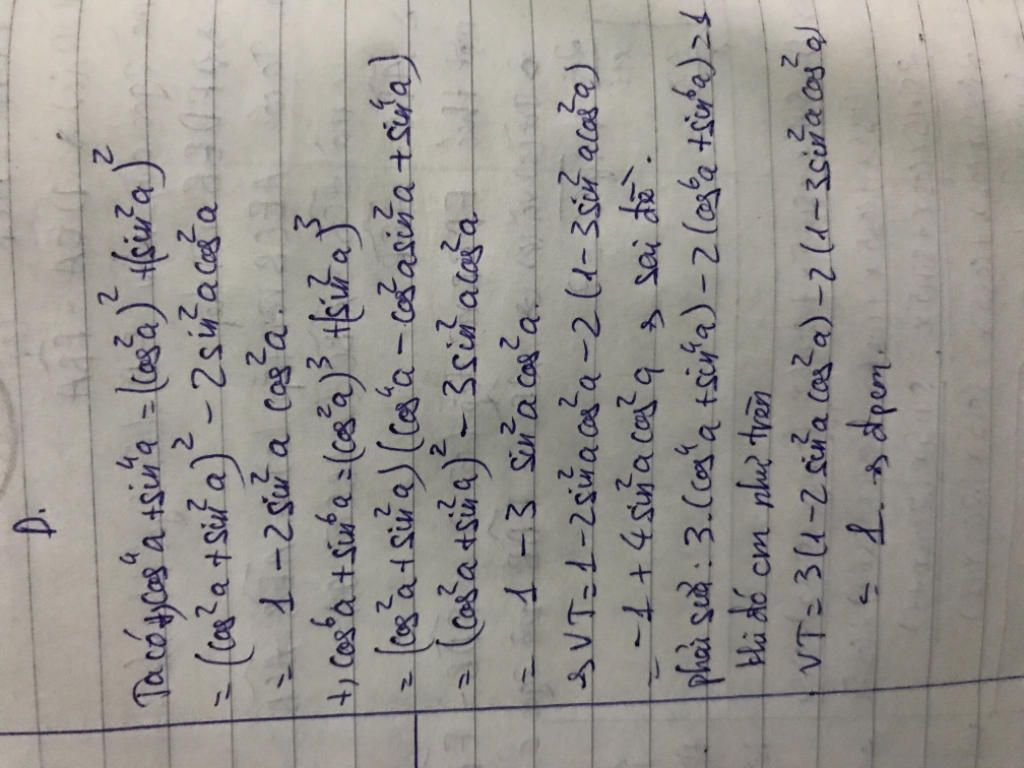 D.
Ta có +, cos⁴a + sin⁴a = (cos²a)² + (sin²a)²
= (cos²a + sin²a)² - 2sin²a cos²a
= 1 - 2sin²a cos²a.
+, cos⁶a + sin⁶a = (cos²a)³ + (sin²a)³
= (cos²a + sin²a)(cos⁴a - cos²a sin²a + sin⁴a)
= (cos²a + sin²a)² - 3sin²a cos²a
= 1 - 3 sin²a cos²a.
→ VT = 1 - 2sin²a cos²a - 2(1 - 3sin²a cos²a)
= -1 + 4sin²a cos²a → sai đề.
phải sửa: 3.(cos⁴a + sin⁴a) - 2(cos⁶a + sin⁶a) = 1
khi đó cm như trên
VT = 3(1 - 2sin²a cos²a) - 2(1 - 3sin²a cos²a)
= 1. → đpcm.